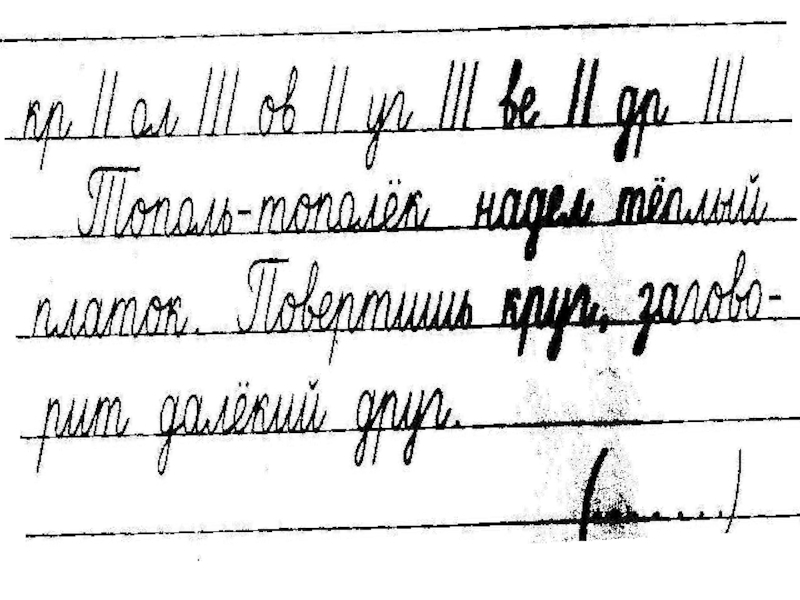 кр || ол ||| ов || уг ||| ве || др |||
Тополь-тополёк надел тёплый
платок. Повертишь круг, загово-
рит далёкий друг.
(.......)